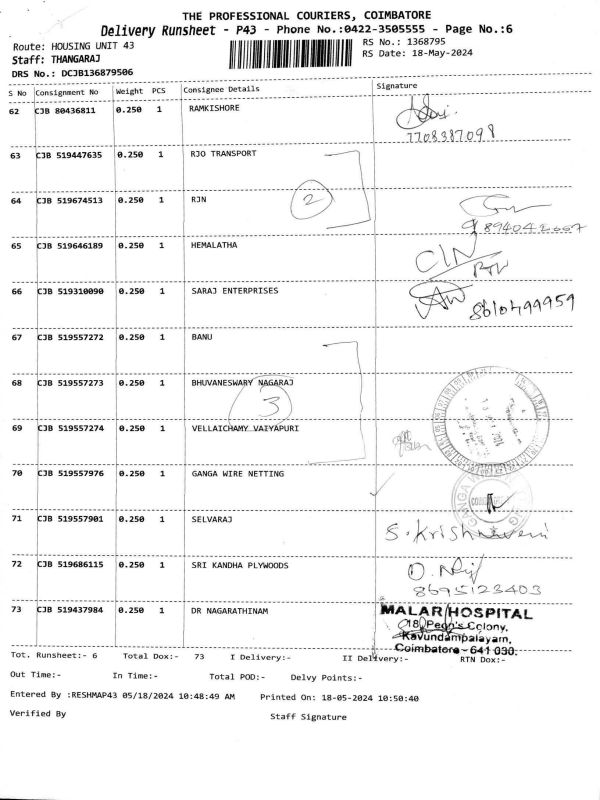 THE PROFESSIONAL COURIERS, COIMBATORE
Delivery Runsheet - P43 - Phone No.:0422-3505555 - Page No.:6
Route: HOUSING UNIT 43
RS No.: 1368795
Staff: THANGARAJ
RS Date: 18-May-2024
DRS No.: DCJB136879506
S No Consignment No Weight PCS Consignee Details Signature
62 CJB 80436811 0.250 1 RAMKISHORE
7708387098
63 CJB 519447635 0.250 1 RJO TRANSPORT
64 CJB 519674513 0.250 1 RJN 2
65 CJB 519646189 0.250 1 HEMALATHA
66 CJB 519310090 0.250 1 SARAJ ENTERPRISES
8610499959
67 CJB 519557272 0.250 1 BANU
68 CJB 519557273 0.250 1 BHUVANESWARY NAGARAJ
3
69 CJB 519557274 0.250 1 VELLAICHAMY VAIYAPURI
70 CJB 519557976 0.250 1 GANGA WIRE NETTING
71 CJB 519557901 0.250 1 SELVARAJ
S. Krishnaveni
72 CJB 519686115 0.250 1 SRI KANDHA PLYWOODS
8695123403
73 CJB 519437984 0.250 1 DR NAGARATHINAM
MALAR HOSPITAL
18, Peon's Colony,
Kavundampalayam,
Coimbatore - 641 030.
Tot. Runsheet:- 6 Total Dox:- 73 I Delivery:- II Delivery:- RTN Dox:-
Out Time:- In Time:- Total POD:- Delvy Points:-
Entered By :RESHMAP43 05/18/2024 10:48:49 AM Printed On: 18-05-2024 10:50:40
Verified By Staff Signature